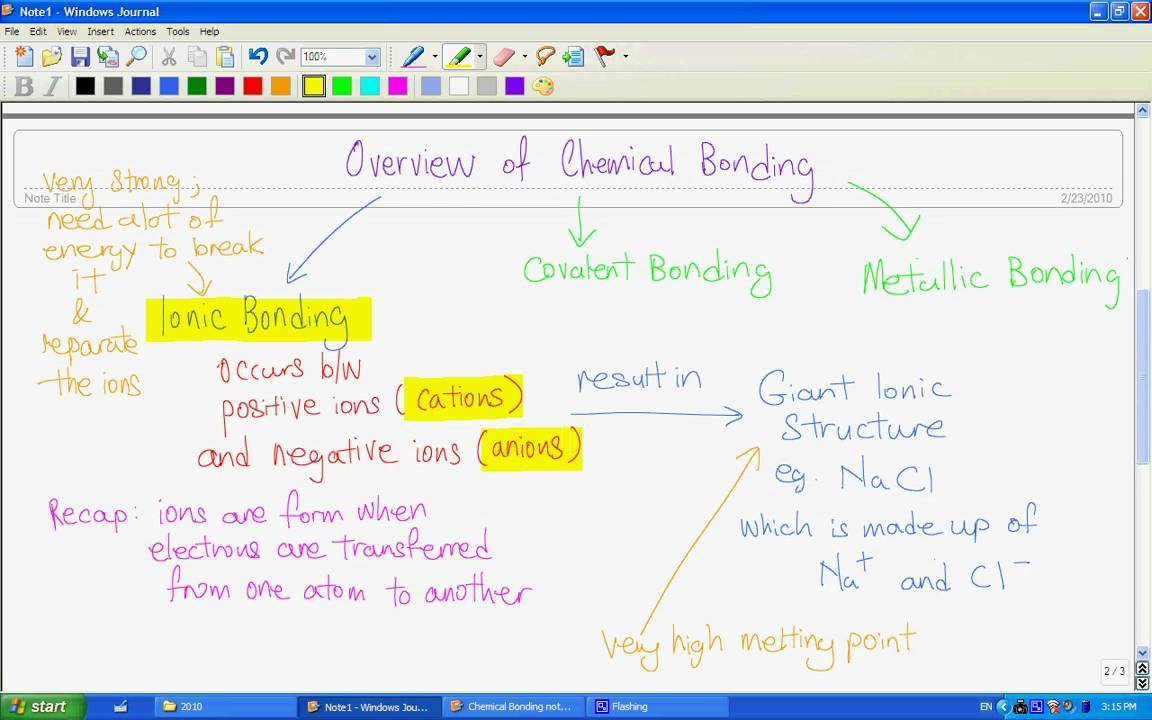 Note1 - Windows Journal
File Edit View Insert Actions Tools Help
100%
B I
Overview of Chemical Bonding
Note Title
2/23/2010
very strong;
need alot of
energy to break
it
&
reparate
the ions
Ionic Bonding
Covalent Bonding
Metallic Bonding
occurs b/w
positive ions (cations)
and negative ions (anions)
result in
Giant Ionic
Structure
eg. NaCl
which is made up of
Na⁺ and Cl⁻
Recap: ions are form when
electrons are transferred
from one atom to another
very high melting point
2 / 3
start
2010
Note1 - Windows Jou...
Chemical Bonding not...
Flashing
EN
3:15 PM